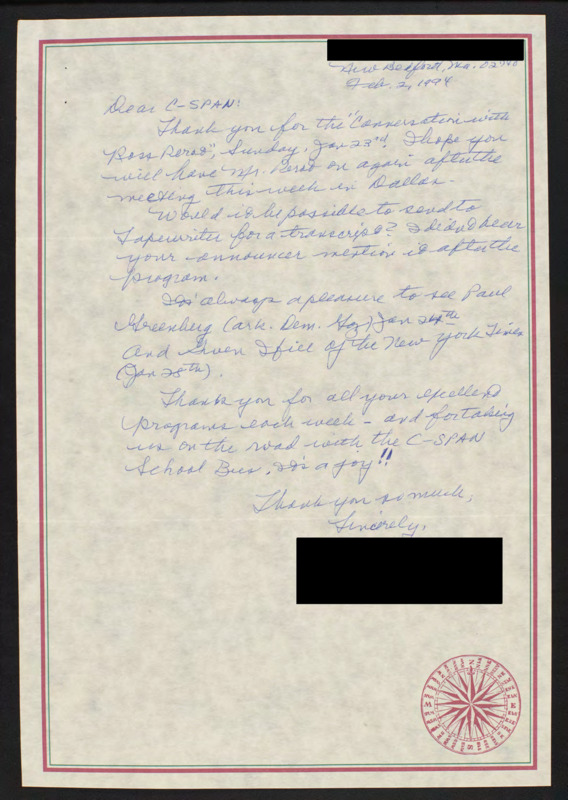 New Bedford, Ma.
Feb. 2, 1994
Dear C-SPAN:
Thank you for the "Conversation with
Ross Perot", Sunday, Jan 23rd. I hope you
will have Mr. Perot on again after the
meeting this week in Dallas.
Would it be possible to send to
Tapewriter for a transcript? I didn't hear
your announcer mention it after the
program.
It's always a pleasure to see Paul
Greenberg (Ark. Dem. Gaz) Jan
and Gwen Ifill of the New York Times
(Jan 28th).
Thank you for all your excellent
programs each week - and for taking
us on the road with the C-SPAN
School Bus. It's a joy!!
Thank you so much,
Sincerely,